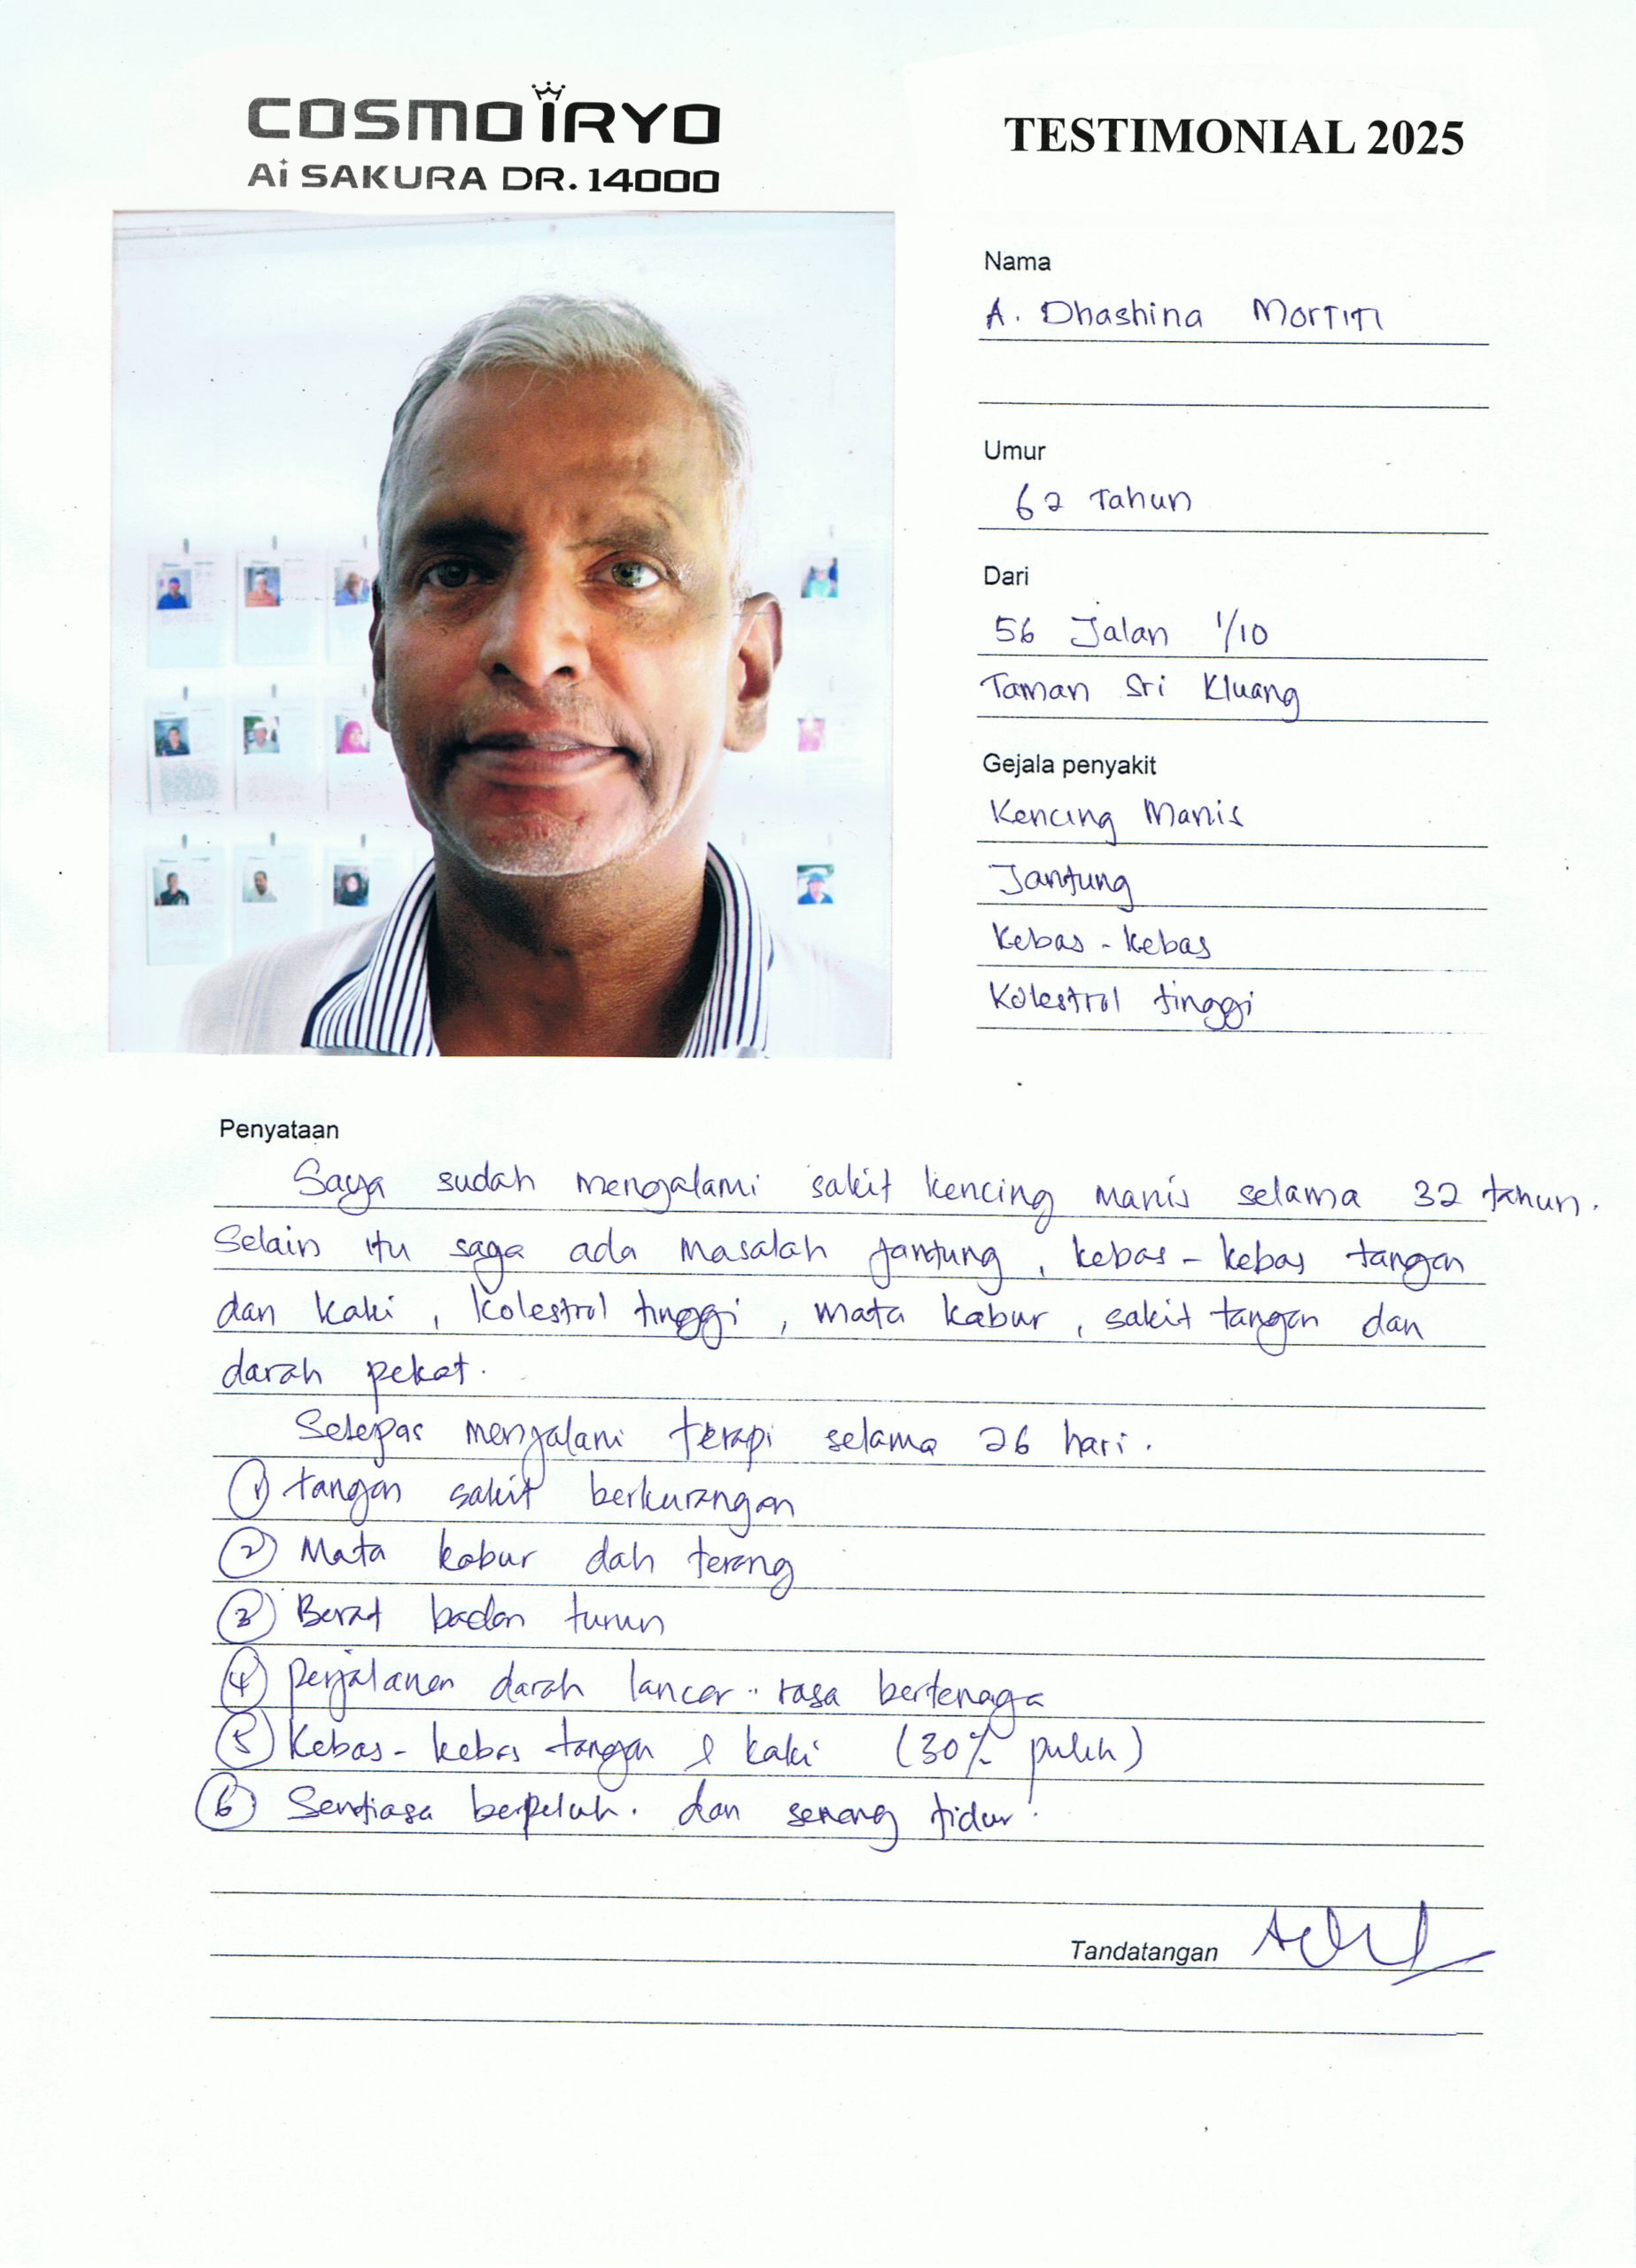 COSMO iRYO
Ai SAKURA DR. 14000
TESTIMONIAL 2025
Nama
A. Dhashina Mortiti
Umur
62 Tahun
Dari
56 Jalan 1/10
Taman Sri Kluang
Gejala penyakit
Kencing Manis
Jantung
Kebas - kebas
Kolestrol tinggi
Penyataan
Saya sudah mengalami sakit kencing manis selama 32 tahun.
Selain itu saya ada masalah jantung, kebas - kebas tangan
dan kaki, kolestrol tinggi, mata kabur, sakit tangan dan
darah pekat.
Selepas menjalani terapi selama 26 hari.
1 tangan sakit berkurangan
2 Mata kabur dah terang
3 Berat badan turun
4 Perjalanan darah lancar.. rasa bertenaga
5 Kebas - kebas tangan & kaki (30% pulih)
6 Sentiasa berpeluh. dan senang tidur.
Tandatangan